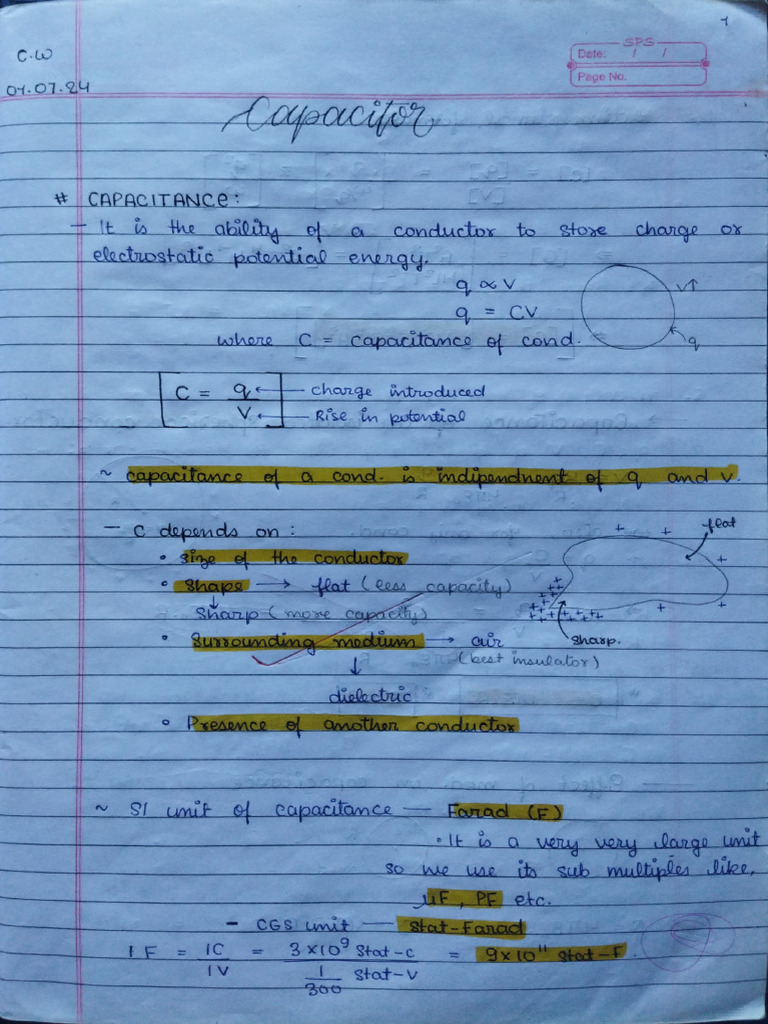 1
C.W
SPS
Date: / /
Page No.
01.07.24
Capacitor
# CAPACITANCE:
- It is the ability of a conductor to store charge or
electrostatic potential energy.
q ∝ V
q = CV
V↑
q
where C = capacitance of cond.
C = q/V
q ← charge introduced
V ← Rise in potential
~ capacitance of a cond. is indipendnent of q and v.
- C depends on:
• size of the conductor
• shape → flat (less capacity)
↓
sharp (more capacity)
flat
+ + + + + +
sharp.
• Surrounding medium → air
(best insulator)
↓
dielectric
• Presence of another conductor
~ SI unit of capacitance — Farad (F)
• It is a very very large unit
so we use its sub multiples like,
μF, PF etc.
- CGS unit — Stat-Farad
1 F = 1C/1V = 3×10⁹ Stat-C / (1/300 Stat-V) = 9×10¹¹ Stat-F.